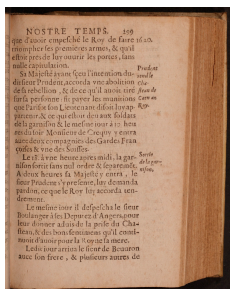 NOSTRE TEMPS. 299
que d'auoir empesché le Roy de faire 1620.
triompher ses premieres armes, & qu'il
estoit prés de luy ouurir les portes, sans
nulle capitulation.
Sa Majesté ayant sceu l'intention du-
dit sieur Prudent, accorda vne abolition
de sa rebellion, & de ce qu'il auoit tiré
sur sa personne: fit payer les munitions
que Parisse son Lieutenant disoit luy ap-
partenir, & ce qui estoit deu aux soldats
de la garnison: & le mesme iour à 12 heu
res du soir Monsieur de Crequy y entra
auec deux compagnies des Gardes Fran
çoises & vne des Suisses.
Le 18. à vne heure apres midi, la gar-
nison sortit sans nul ordre & separement.
A deux heures sa Majesté y entra, le
sieur Prudent s'y presente, luy demanda
pardon, ce que le Roy luy accorda ten-
drement.
Le mesme iour il despescha le sieur
Boulanger à ses Deputez d'Angers, pour
leur donner aduis de la prise du Cha-
steau, & des bons sentimens qu'il conti-
nuoit d'auoir pour la Royne sa mere.
Ledit iour arriua le sieur de Beauron
auec son frere, & plusieurs autres de
Prudent
rend le
Cha-
steau de
Caen au
Roy.
Sortie
de la gar-
nison.